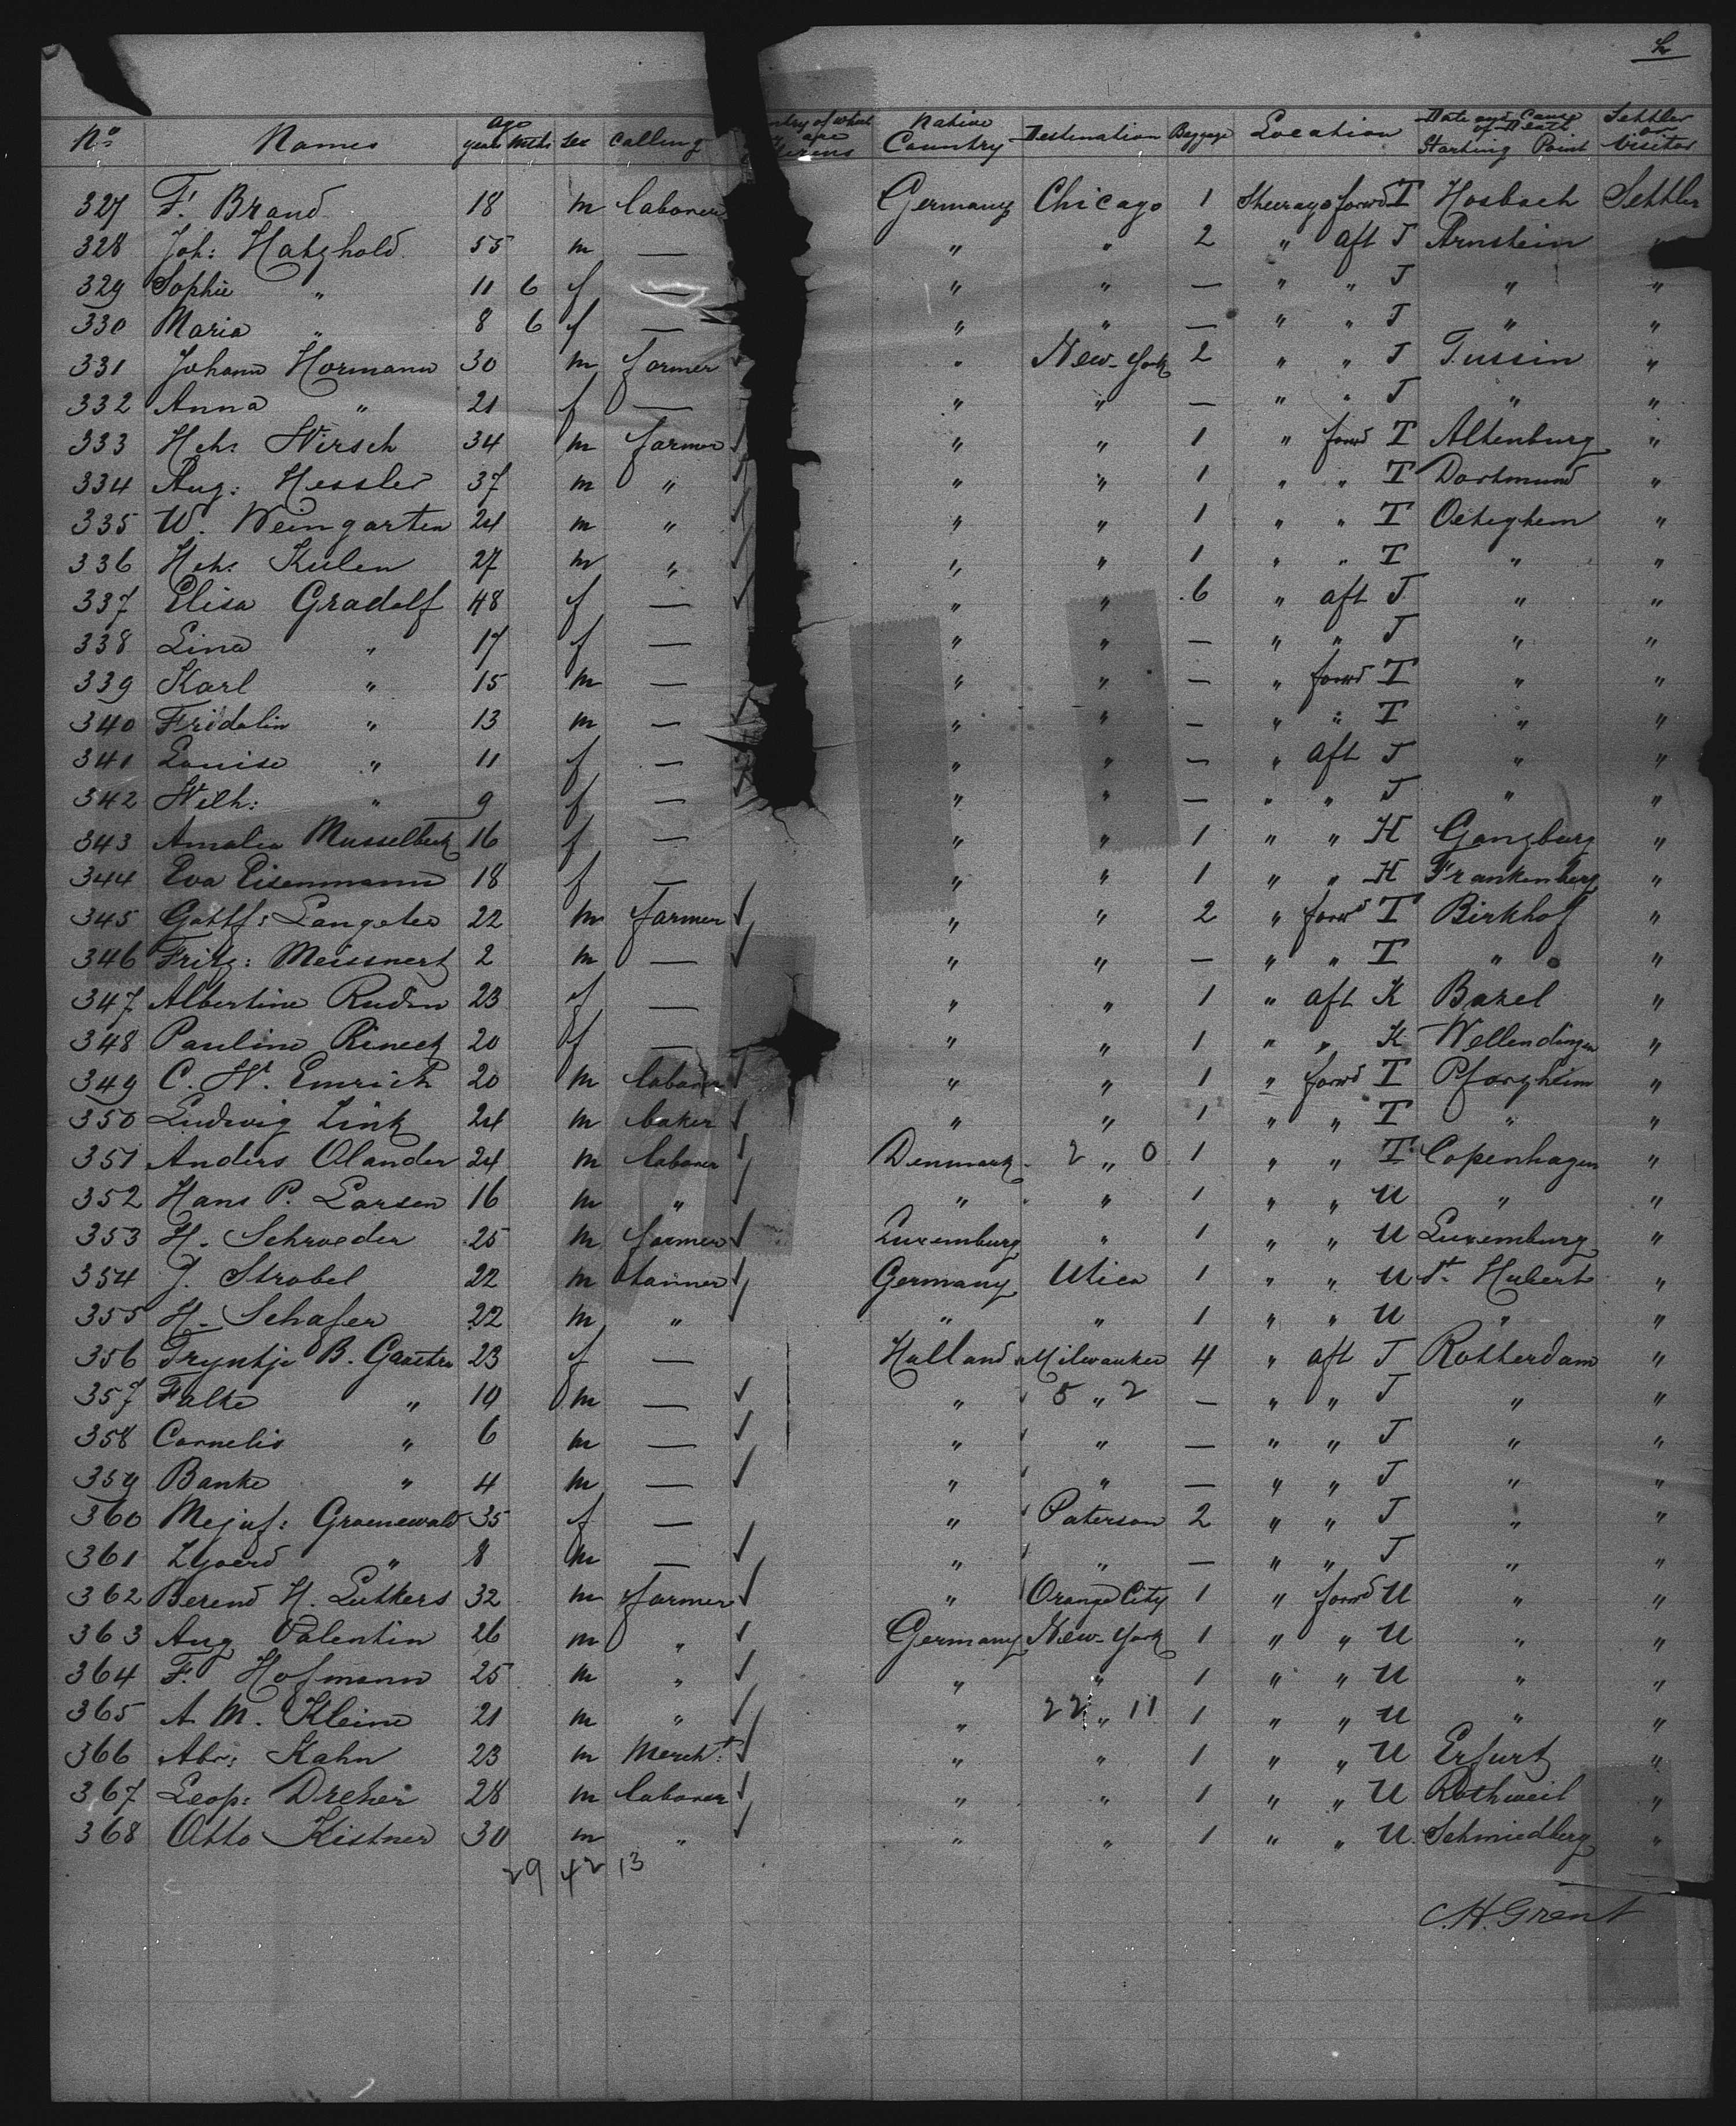 No Names age years mths Sex Calling Country of what they are Citizens Native Country Destination Baggage Location Date and Cause of Death Starting Point Settler or Visitor
327 F. Brand 18 m laborer Germany Chicago 1 Steerage forwd T Hosbach Settler
328 Joh: Hatzhold 55 m — " " 2 " aft J Arnstein "
329 Sophie " 11 6 f — " " — " " J " "
330 Maria " 8 6 f — " " — " " J " "
331 Johann Hormann 30 m farmer " New-York 2 " " J Tussin "
332 Anna " 21 f — " " — " " J " "
333 Hch: Wirsch 34 m farmer " " 1 " forwd T Altenburg "
334 Aug: Hessler 37 m " " " 1 " " T Dortmund "
335 W. Weingarten 24 m " " " 1 " " T "
336 Hch: Kulen 27 m " " " 1 " " T " "
337 Elisa Gradolf 48 f — " " 6 " aft J " "
338 Lina " 17 f — " " — " " J " "
339 Karl " 15 m — " " — " forwd T " "
340 Fridolin " 13 m — " " — " " T " "
341 Louise " 11 f — " " — " aft J " "
342 Wilh: " 9 f — " " — " " J " "
343 Amalia Musselbeck 16 f — " " 1 " " H Ganzburg "
344 Eva Eisenmann 18 f — " " 1 " " H Frankenberg "
345 Gottf: 22 m farmer " " 2 " forwd T Birkhof "
346 Fritz: Meissnert 2 m — " " — " " T " "
347 Albertine 23 f — " " 1 " aft K Basel "
348 Pauline Rineck 20 f — " " 1 " " K Wellendingen "
349 C. W. Emrich 20 m laborer " " 1 " forwd T Pforzheim "
350 Ludwig Link 24 m baker " " 1 " " T " "
351 Anders Olander 24 m laborer Denmark 2 " 0 1 " " T Copenhagen "
352 Hans P. Larsen 16 m " " " 1 " " U " "
353 H. Schroeder 25 m farmer Luxemburg " 1 " " U Luxemburg "
354 J. Strobel 22 m tanner Germany Utica 1 " " U St. Hubert "
355 H. Schafer 22 m " " " 1 " " U " "
356 Tryntje B. Gaastra 23 f — Holland Milwaukee 4 " aft J Rotterdam "
357 Falke " 10 m — " 5 " 2 — " " J " "
358 Cornelis " 6 m — " " — " " J " "
359 Banke " 4 m — " " — " " J " "
360 Mejuf: Groenewald 35 f — " Paterson 2 " " J " "
361 " 8 m — " " — " " J " "
362 Berend H. Lutkers 32 m farmer " Orange City 1 " forwd U " "
363 Aug Valentin 26 m " Germany New-York 1 " " U " "
364 F. Hofmann 25 m " " " 1 " " U " "
365 A. M. Kleine 21 m " " 22 " 11 1 " " U " "
366 Abr: Kahn 23 m Mercht. " " 1 " " U Erfurt "
367 Leop: Dreher 28 m laborer " " 1 " " U Rothweil "
368 Otto Kistner 30 m " " " 1 " " U Schmiedberg "
29 42 13
C.H. Grant